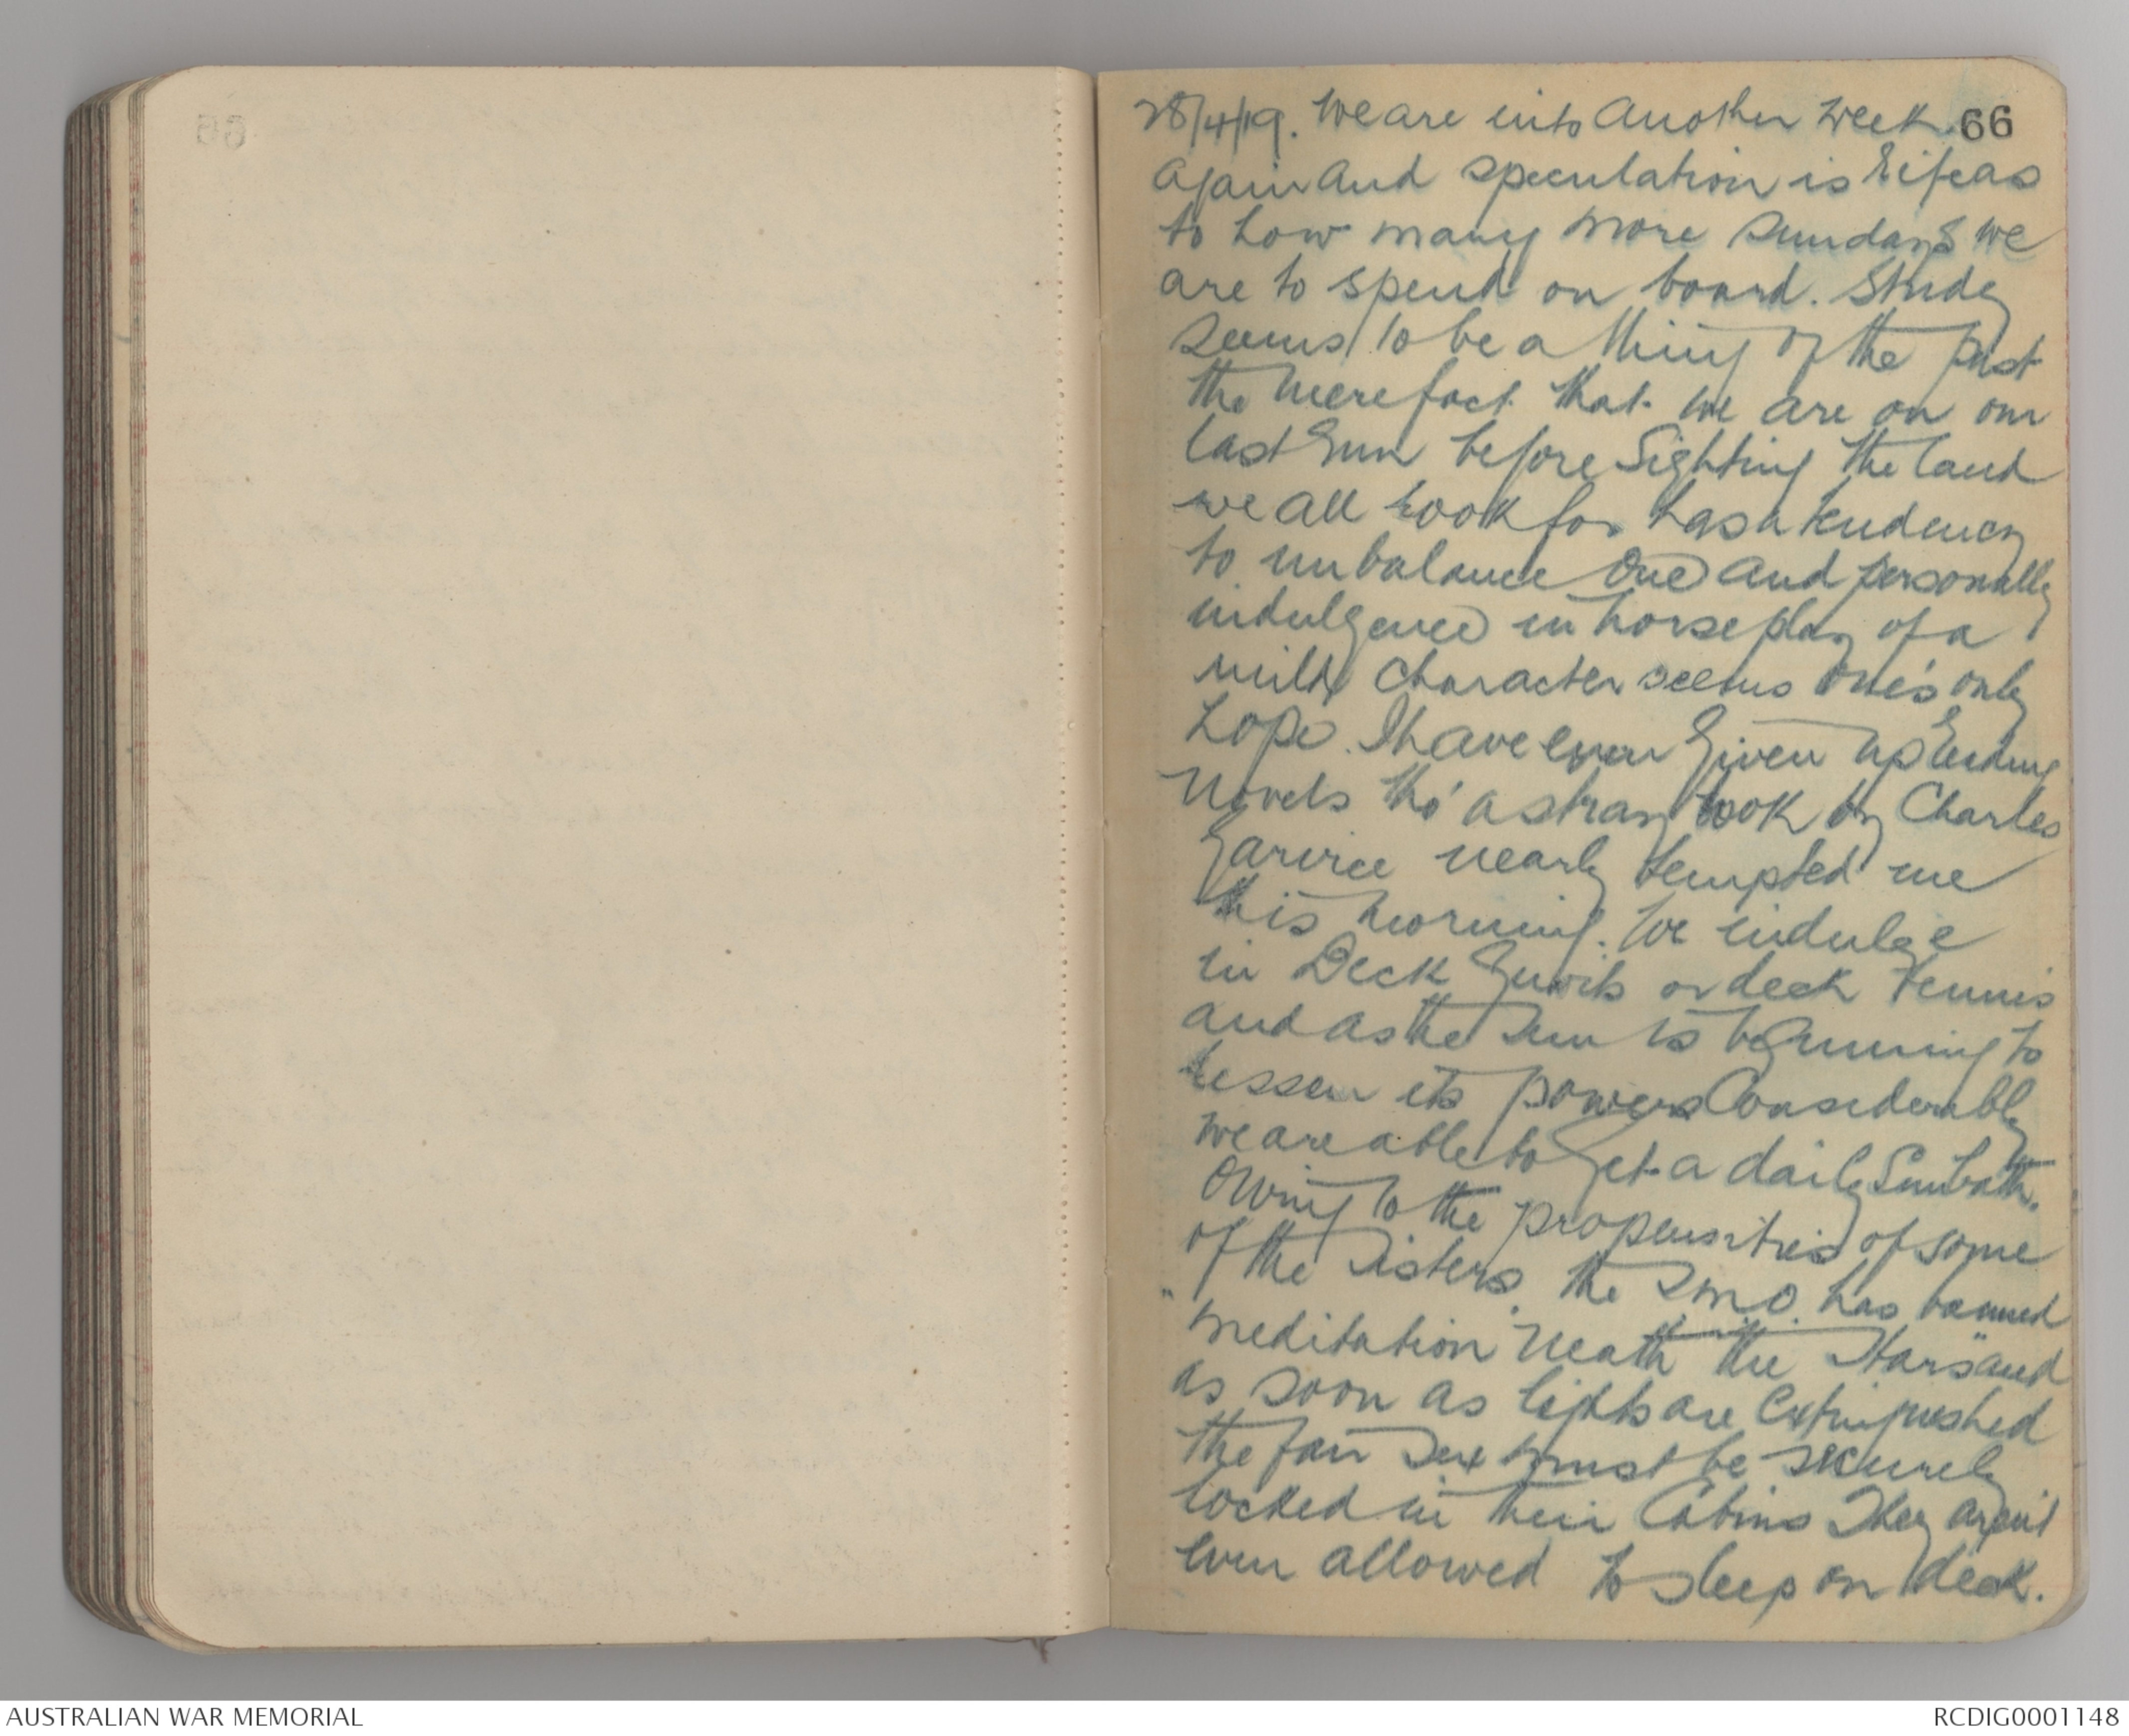 66
28/4/19. We are into another week
again and speculation is rife as
to how many more Sundays we
are to spend on board. Study
seems to be a thing of the past
the mere fact that we are on our
last run before sighting the land
we all look for has a tendency
to unbalance one and personally
indulgence in horseplay of a
mild character seems one's only
hope. I have even given up reading
Novels tho' a stray book by Charles
Garvice nearly tempted me
this morning. We indulge
in Deck Quoits or deck tennis
and as the sun is beginning to
lessen its powers considerably
we are able to get a daily Sunbath.
Owing to the propensities of some
of the Sisters, the S.M.O. has banned
"meditation 'neath the Stars" and
as soon as lights are extinguished
the fair sex must be securely
locked in their Cabins They aren't
even allowed to sleep on deck.
AUSTRALIAN WAR MEMORIAL
RCDIG0001148